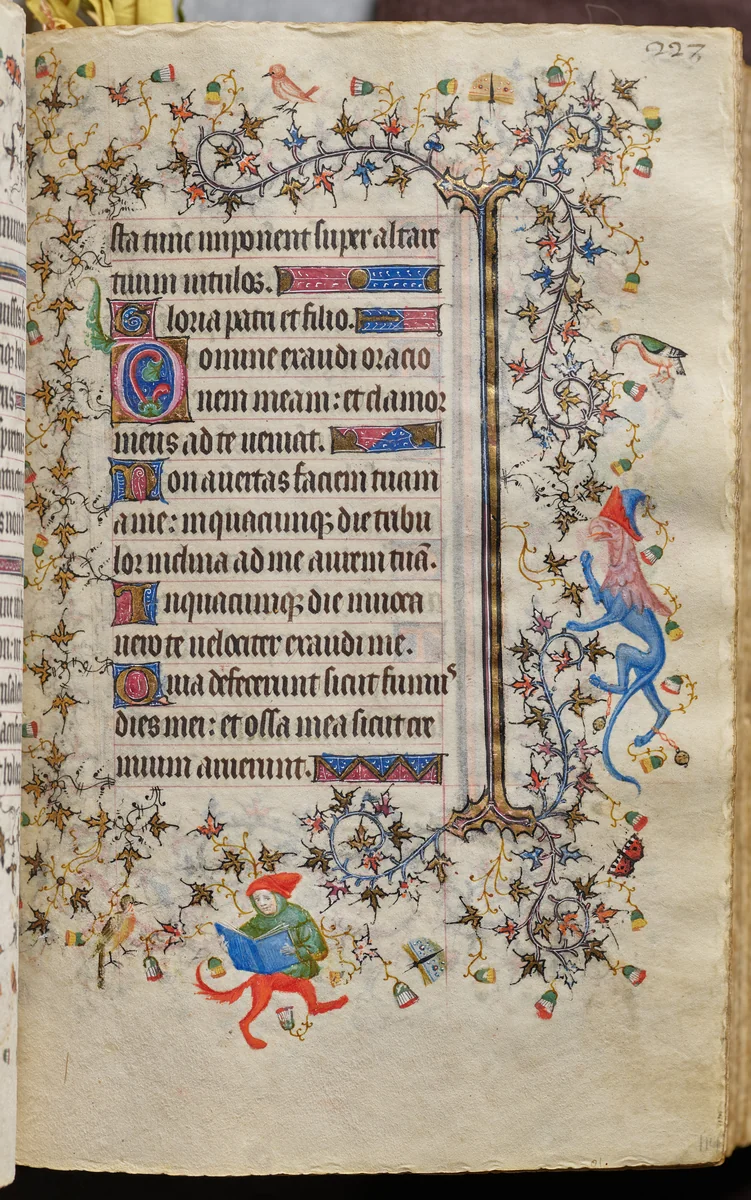 227
sta tunc imponent super altare
tuum vitulos.
Gloria patri et filio.
Domine exaudi oracio
nem meam: et clamor
meus ad te veniat.
Non avertas faciem tuam
a me: in quacunqꝫ die tribu
lor inclina ad me aurem tuā.
In quacunqꝫ die invoca
vero te velociter exaudi me.
Quia defecerunt sicut fumus
dies mei: et ossa mea sicut cre
mium aruerunt.